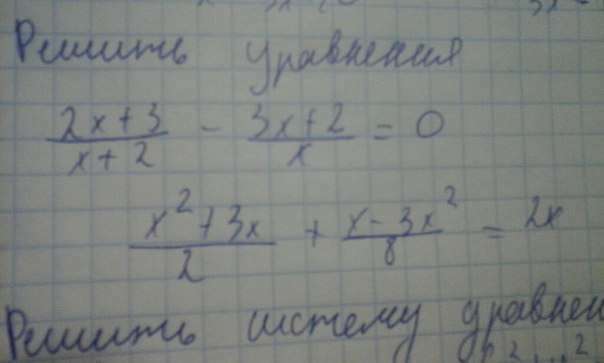 Решить уравнения
(2x+3)/(x+2) - (3x+2)/x = 0
(x²+3x)/2 + (x-3x²)/8 = 2x
Решить систему